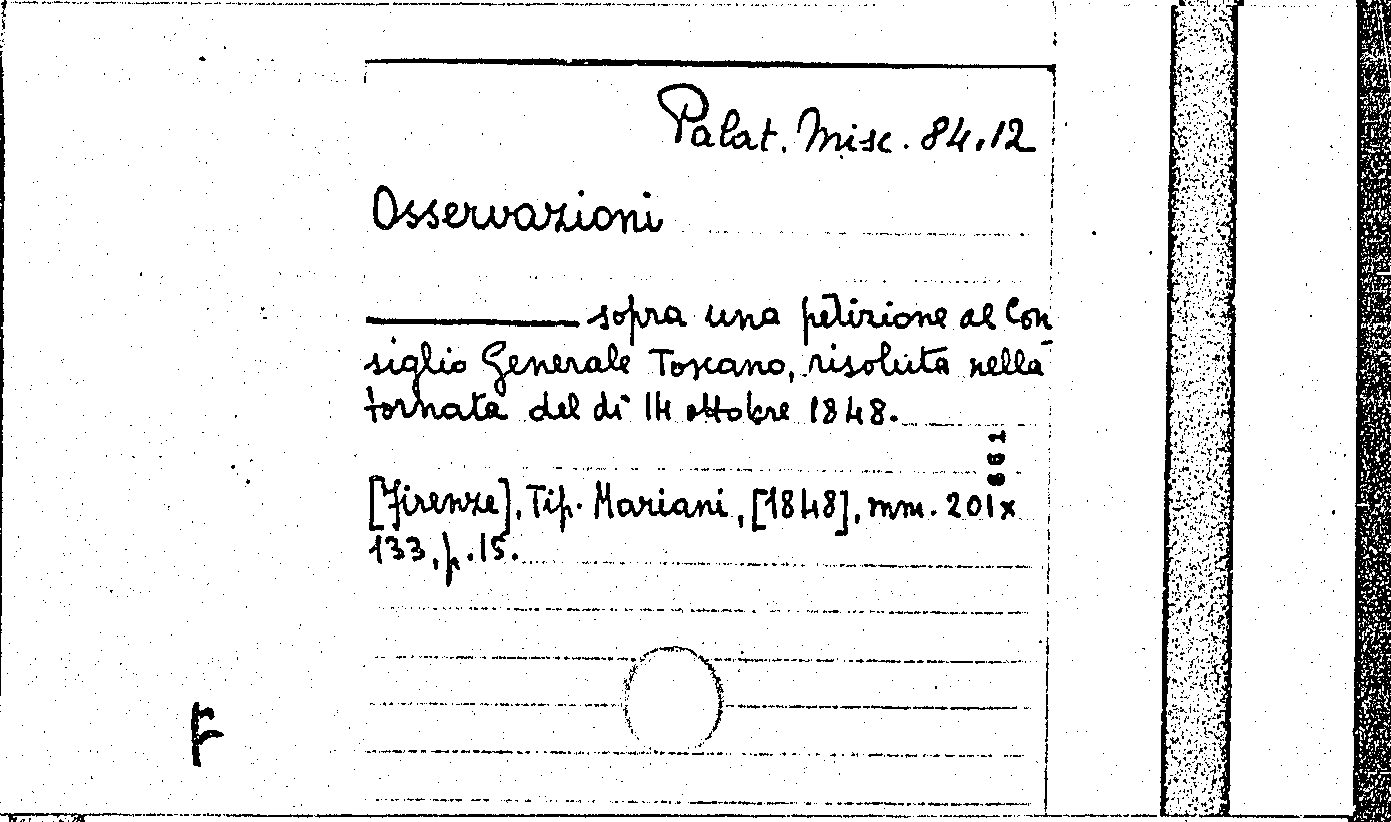 Palat. Misc. 84.12
Osservazioni
sopra una petizione al Con-
siglio Generale Toscano, risoluta nella
tornata del dì 14 ottobre 1848.
[Firenze], Tip. Mariani, [1848], mm. 201x
133, p. 15.
F